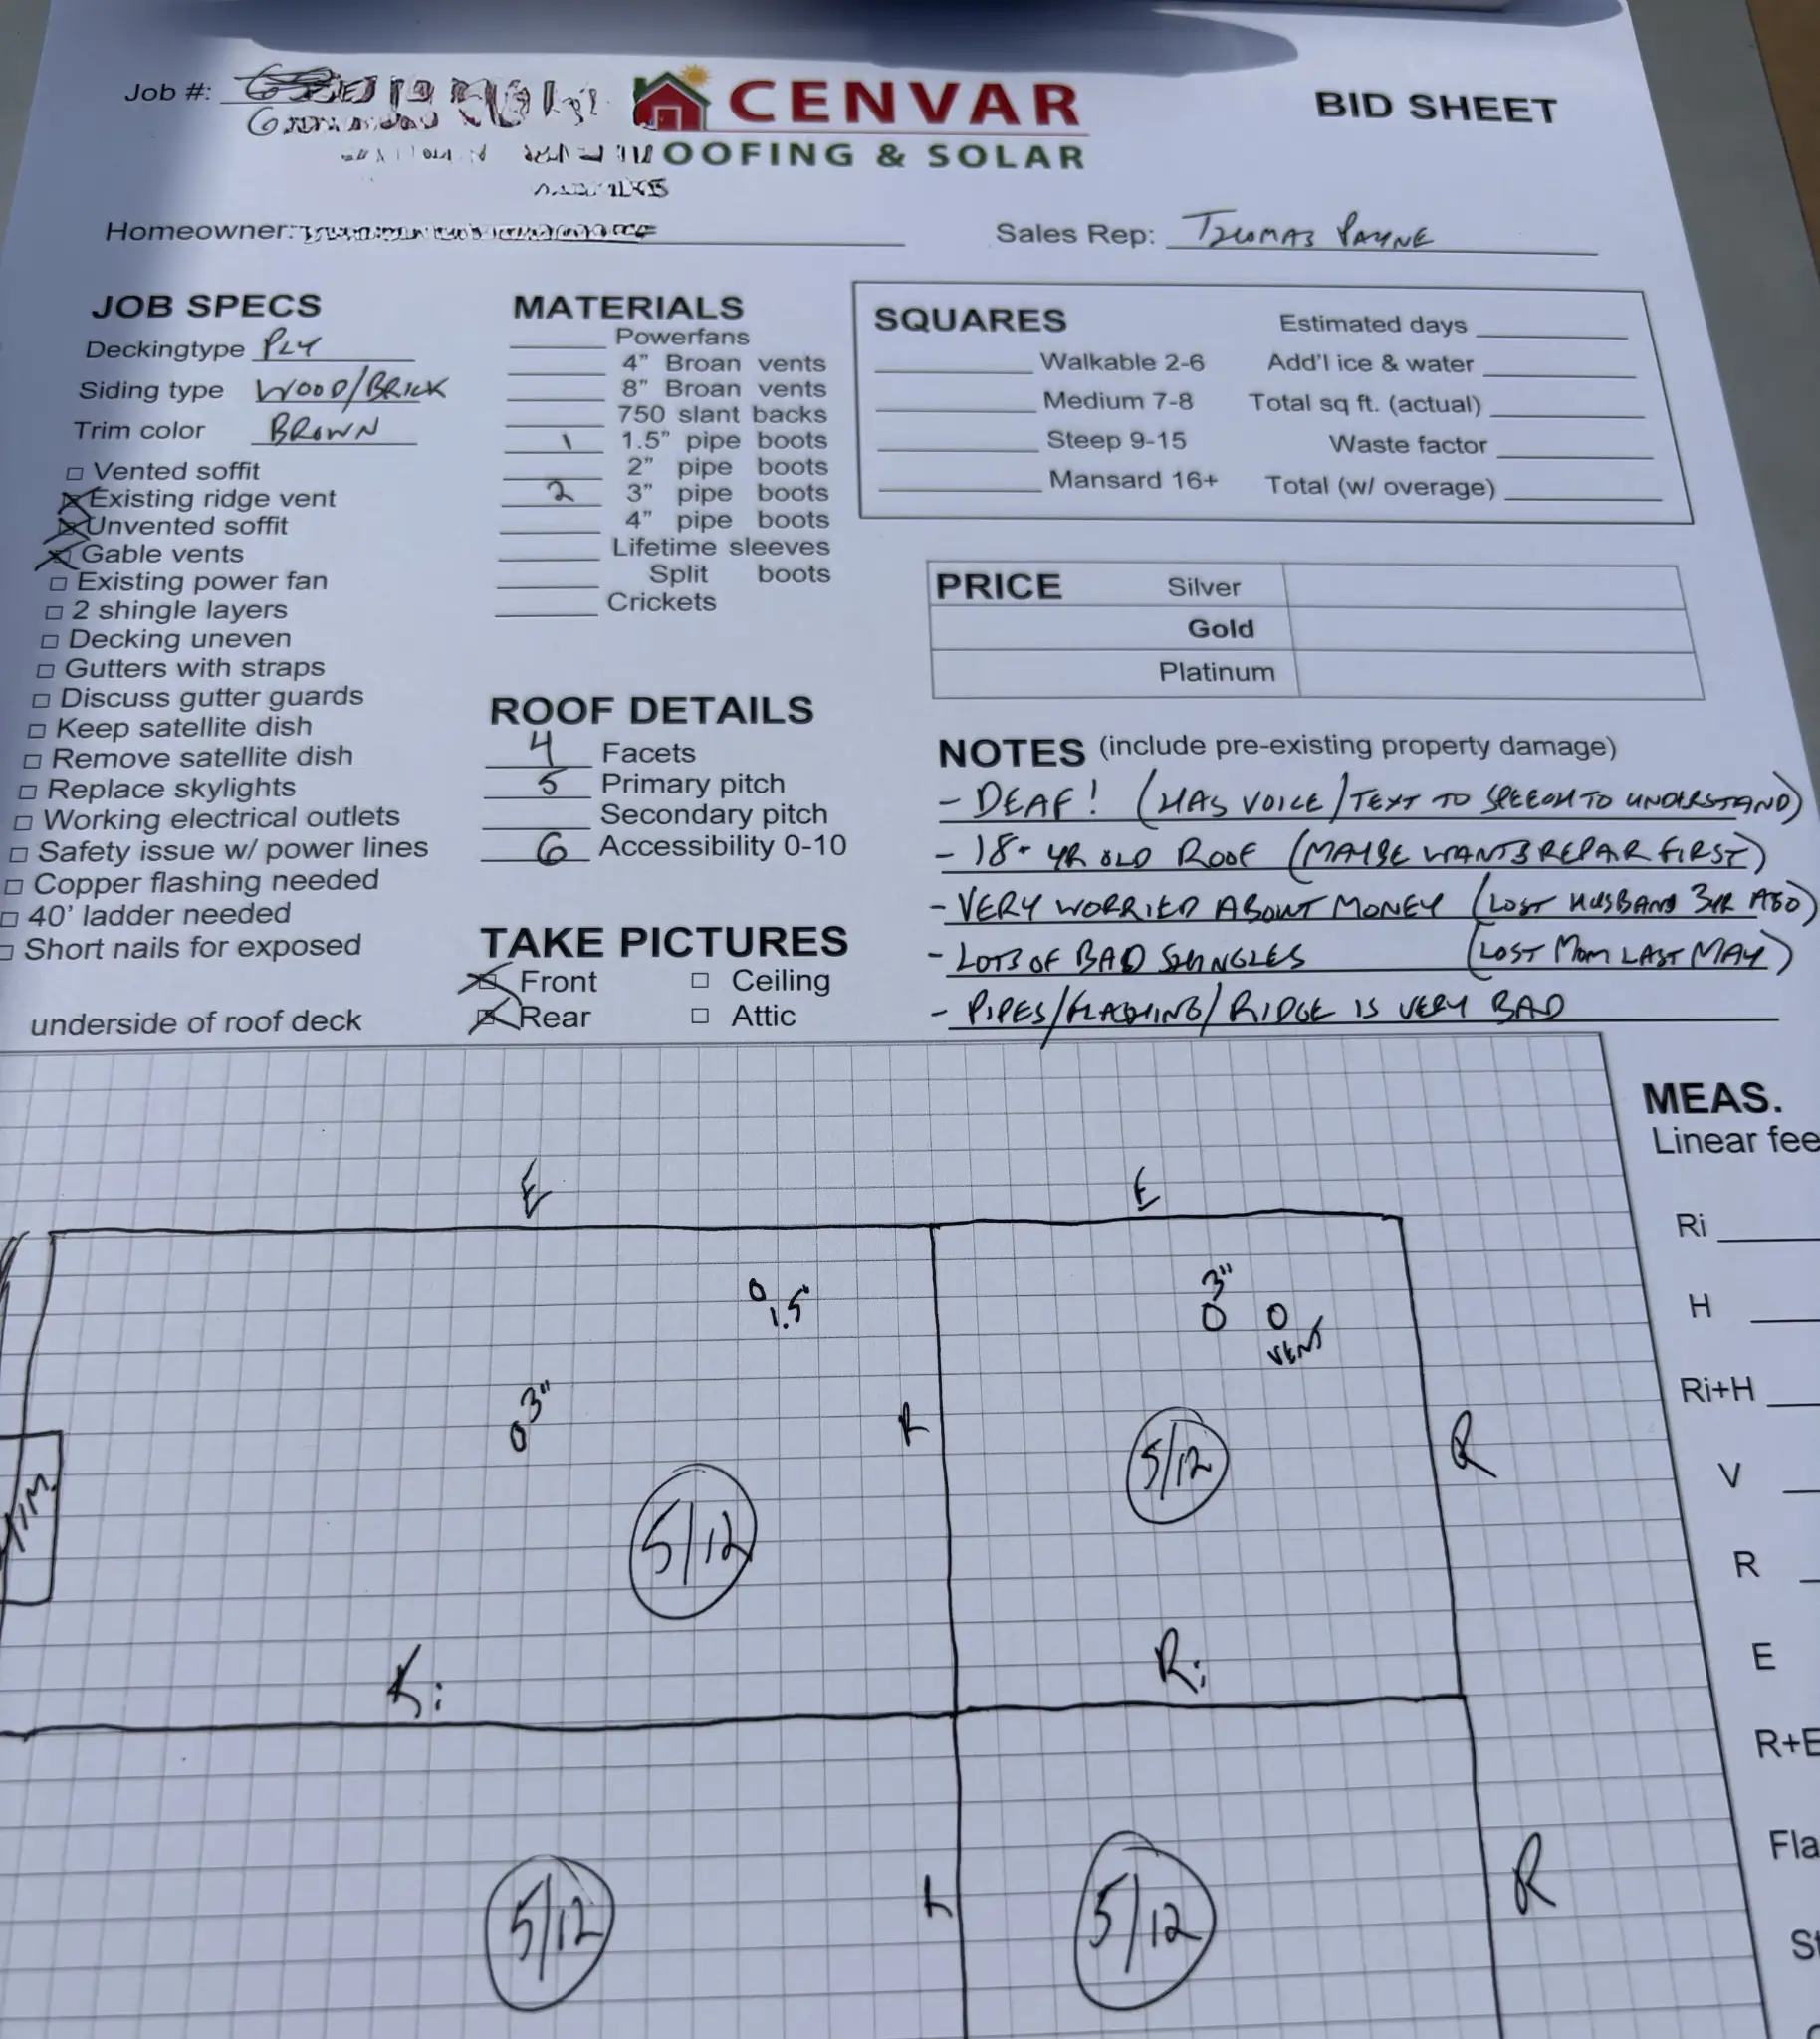 Job #:
CENVAR
OOFING & SOLAR
BID SHEET
Homeowner:
Sales Rep: THOMAS PAYNE
JOB SPECS
Deckingtype PLY
Siding type WOOD/BRICK
Trim color BROWN
Vented soffit
Existing ridge vent
Unvented soffit
Gable vents
Existing power fan
2 shingle layers
Decking uneven
Gutters with straps
Discuss gutter guards
Keep satellite dish
Remove satellite dish
Replace skylights
Working electrical outlets
Safety issue w/ power lines
Copper flashing needed
40' ladder needed
Short nails for exposed
underside of roof deck
MATERIALS
Powerfans
4" Broan vents
8" Broan vents
750 slant backs
1 1.5" pipe boots
2" pipe boots
2 3" pipe boots
4" pipe boots
Lifetime sleeves
Split boots
Crickets
ROOF DETAILS
4 Facets
5 Primary pitch
Secondary pitch
6 Accessibility 0-10
TAKE PICTURES
Front
Ceiling
Rear
Attic
SQUARES
Walkable 2-6
Medium 7-8
Steep 9-15
Mansard 16+
Estimated days
Add'l ice & water
Total sq ft. (actual)
Waste factor
Total (w/ overage)
PRICE
Silver
Gold
Platinum
NOTES (include pre-existing property damage)
- DEAF! (HAS VOICE/TEXT TO SPEECH TO UNDERSTAND)
- 18+ YR OLD ROOF (MAYBE WANTS REPAIR FIRST)
- VERY WORRIED ABOUT MONEY (LOST HUSBAND 3YR AGO)
- LOTS OF BAD SHINGLES (LOST MOM LAST MAY)
- PIPES/FLASHING/RIDGE IS VERY BAD
MEAS.
Linear fee
Ri
H
Ri+H
V
R
E
R+E
Fla
St
E
E
1.5"
3"
VENT
3"
R
5/12
R
5/12
Ri
Ri
5/12
R
5/12
R